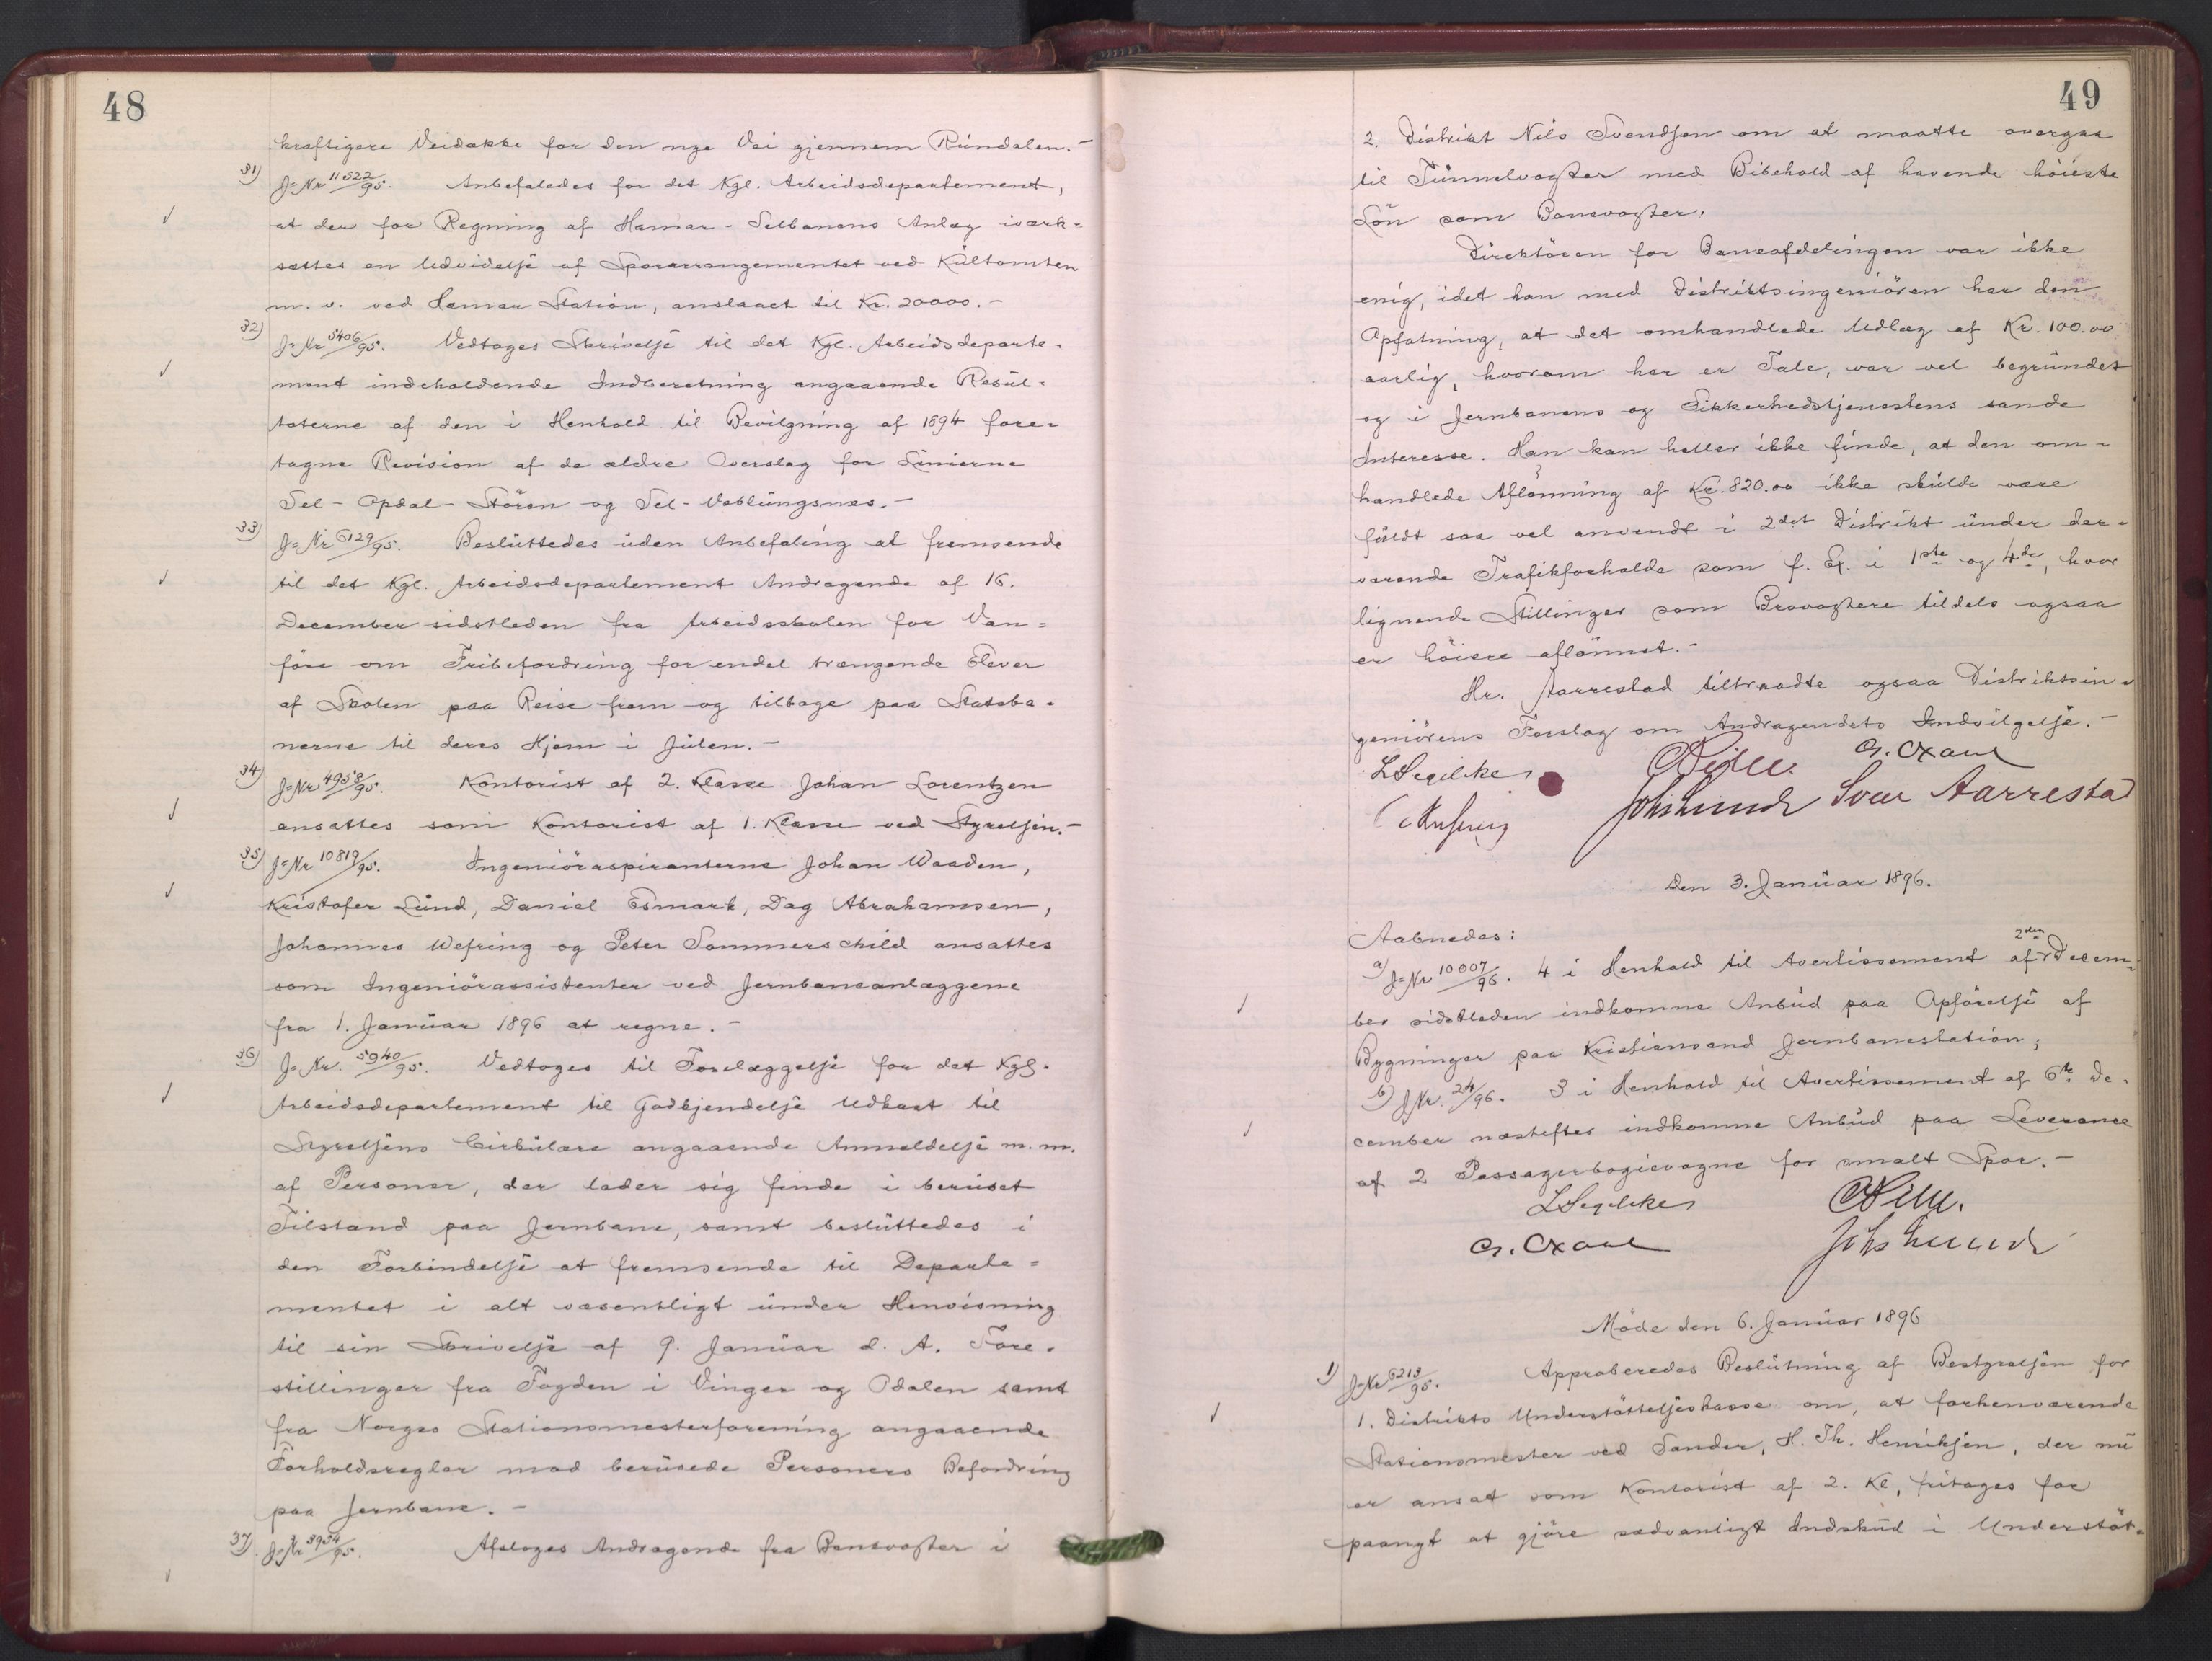 48
kraftigere Veidække for den nye Vei gjennem Rundalen.-
31) J=Nr 11522/95. Anbefaledes for det Kgl. Arbeidsdepartement,
at der for Regning af Hamar-Selbanens Anlæg iværk-
sættes en Udvidelse af Sporarrangementet ved Kultomten
m. v. ved Hamar Station, anslaaet til Kr. 20000.-
32) J=Nr 5406/95. Vedtoges Skrivelse til det Kgl. Arbeidsdeparte-
ment indeholdende Indberetning angaaende Resul-
taterne af den i Henhold til Bevilgning af 1894 fore-
tagne Revision af de ældre Overslag for Linierne
Sel-Opdal-Stören og Sel-Veblungsnæs.-
33) J=Nr 6129/95. Besluttedes uden Anbefaling at fremsende
til det Kgl. Arbeidsdepartement Andragende af 16.
December sidstleden fra Arbeidsskolen for Van=
före om Fribefordring for endel trængende Elever
af Skolen paa Reise frem og tilbage paa Statsba-
nerne til deres Hjem i Julen.-
34) J=Nr 4958/95. Kontorist af 2. Klasse Johan Lorentzen
ansattes som Kontorist af 1. Klasse ved Styrelsen.-
35) J=Nr 10819/95. Ingeniöraspiranterne Johan Waaden,
Kristofer Lund, Daniel Esmark, Dag Abrahamsen,
Johannes Wefring og Peter Sommerschild ansattes
som Ingeniörassistenter ved Jernbaneanlæggene
fra 1. Januar 1896 at regne.-
36) J=Nr. 5940/95. Vedtoges til Forelæggelse for det Kgl.
Arbeidsdepartement til Godkjendelse Udkast til
Styrelsens Cirkulære angaaende Anmeldelse m.m.
af Personer, der lader sig finde i beruset
Tilstand paa Jernbane, samt besluttedes i
den Forbindelse at fremsende til Departe=
mentet i alt væsentligt under Henvisning
til sin Skrivelse af 9. Januar d. A. Fore-
stillinger fra Fogden i Vinger og Odalen samt
fra Norges Stationsmesterforening angaaende
Forholdsregler mod berusede Personers Befordring
paa Jernbane.-
37). J=Nr 3954/95. Afsloges Andragende fra Banevogter i
49
2. Distrikt Nils Svendsen om at maatte overgaa
til Tunnelvogter med Bibehold af havende höieste
Lön som Banevogter.
Direktören for Baneafdelingen var ikke
enig, idet han med Distriktsingeniören har den
Opfatning, at det omhandlede Udlæg af Kr. 100.00
aarlig, hvorom her er Tale, var vel begrundet
og i Jernbanens og Sikkerhedstjenestens sande
Interesse. Han kan heller ikke finde, at den om-
handlede Aflönning af Kr. 820.00 ikke skulde være
fuldt saa vel anvendt i 2det Distrikt under der-
værende Trafikforholde som f. Ex. i 1ste og 4de, hvor
lignende Stillinger som Brovogtere tildels ogsaa
er höiere aflönnet.-
Hr. Aarrestad tiltraadte ogsaa Distriktsin-
geniörens Forslag om Andragendets Indvilgelse.-
LSegelcke
Joh Lunde Sven Aarrestad
Den 3. Januar 1896.
Aabnedes:
a) J=Nr 10007/96. 4 i Henhold til Avertissement af 2den Decem-
ber sidstleden indkomne Anbud paa Opförelse af
Bygninger paa Kristiansand Jernbanestation;
b) JNr. 24/96. 3 i Henhold til Avertissement af 6te De-
cember næstefter indkomne Anbud paa Leverance
af 2 Passagerbogievogne for smalt Spor.-
LSegelcke
Joh Lunde
Möde den 6. Januar 1896
1) J=Nr 6213/95. Approberedes Beslutning af Bestyrelsen for
1. Distrikts Understöttelseskasse om, at forhenværende
Stationsmester ved Sander, H. Th. Henriksen, der nu
er ansat som Kontorist af 2. Kl, fritages for
paanyt at gjöre sædvanligt Indskud i Understöt-